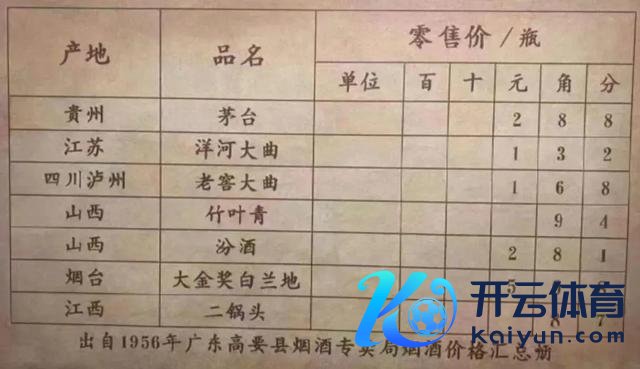 产地 品名 零售价/瓶
单位 百 十 元 角 分
貴州 茅台 2 8 8
江苏 洋河大曲 1 3 2
四川泸州 老窖大曲 1 6 8
山西 竹叶青 9 4
山西 汾酒 2 8 1
烟台 大金奖白兰地 5
江西 二锅头 8 7
开云体育
Kaiyun.com
出自1956年广东高要县烟酒专卖局烟酒价格汇总册